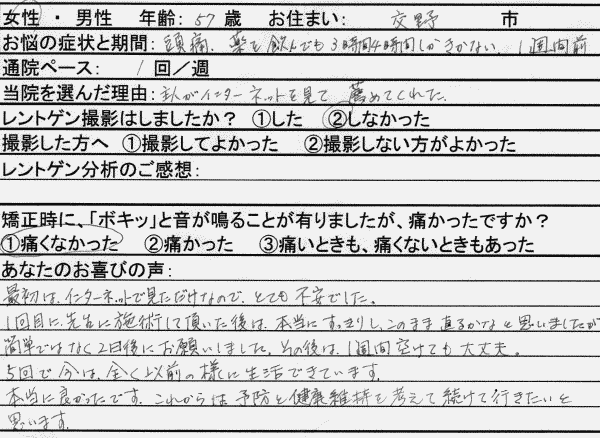 女性 ・ 男性 年齢: 57 歳 お住まい: 交野 市
お悩の症状と期間: 頭痛、薬を飲んでも3時間4時間しかきかない。1週間前
通院ペース: 1 回／週
当院を選んだ理由: 主人がインターネットを見て薦めてくれた。
レントゲン撮影はしましたか？ ①した ②しなかった
撮影した方へ ①撮影してよかった ②撮影しない方がよかった
レントゲン分析のご感想:
矯正時に、「ボキッ」と音が鳴ることが有りましたが、痛かったですか？
①痛くなかった ②痛かった ③痛いときも、痛くないときもあった
あなたのお喜びの声:
最初は、インターネットで見ただけなので、とても不安でした。
1回目に先生に施術して頂いた後は、本当にすっきりし、このまま直るかなと思いましたが
簡単ではなく2日後にお願いしました。その後は、1週間空けても大丈夫。
5回で今は、全く以前の様に生活できています。
本当に良かったです。これからは予防と健康維持を考えて続けて行きたいと
思います。